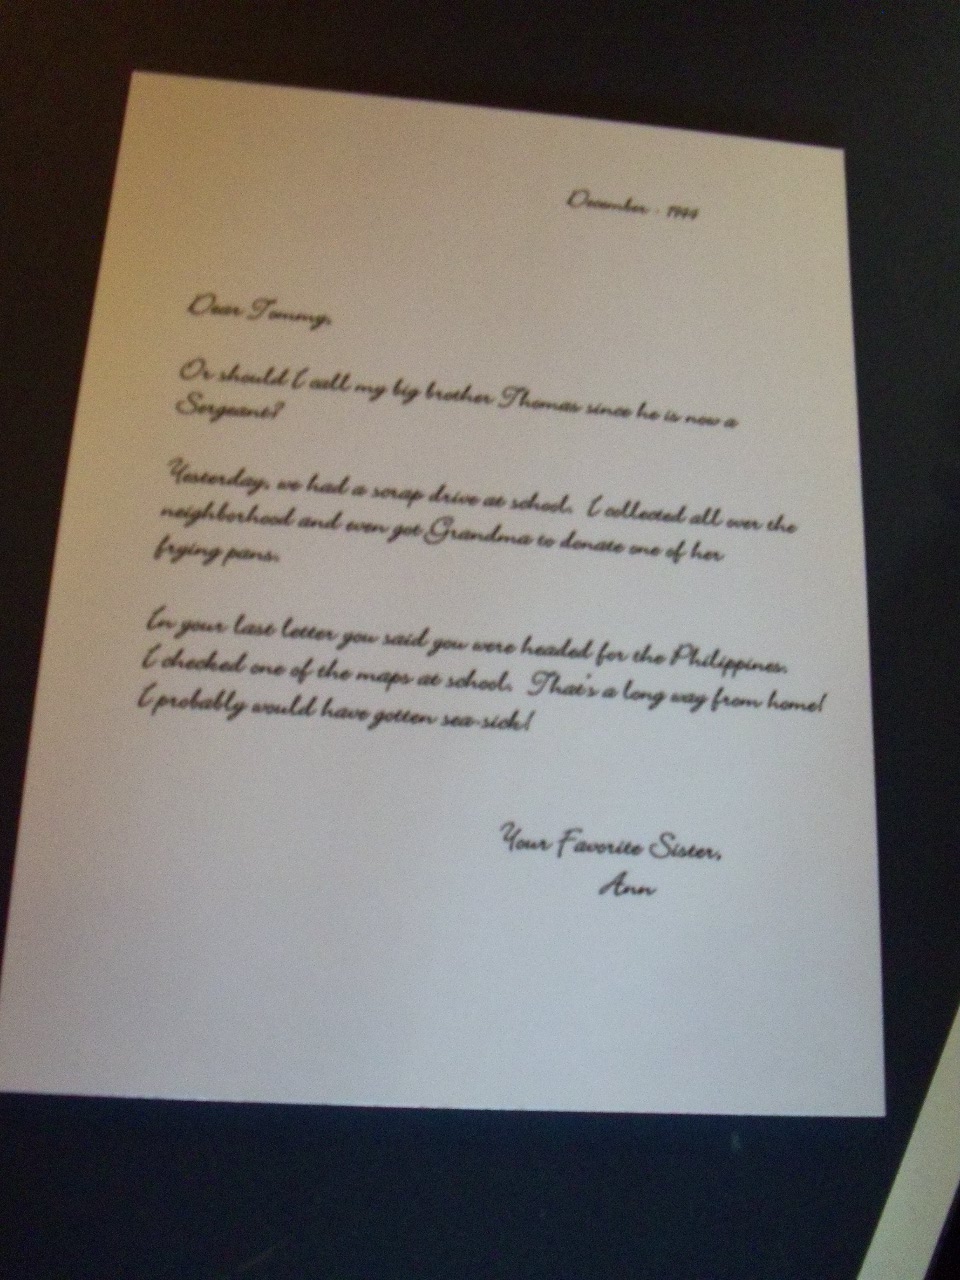 December - 1944
Dear Tommy,
Or should I call my big brother Thomas since he is now a
Sergeant?
Yesterday, we had a scrap drive at school. I collected all over the
neighborhood and even got Grandma to donate one of her
frying pans.
In your last letter you said you were headed for the Philippines.
I checked one of the maps at school. That's a long way from home!
I probably would have gotten sea-sick!
Your Favorite Sister,
Ann